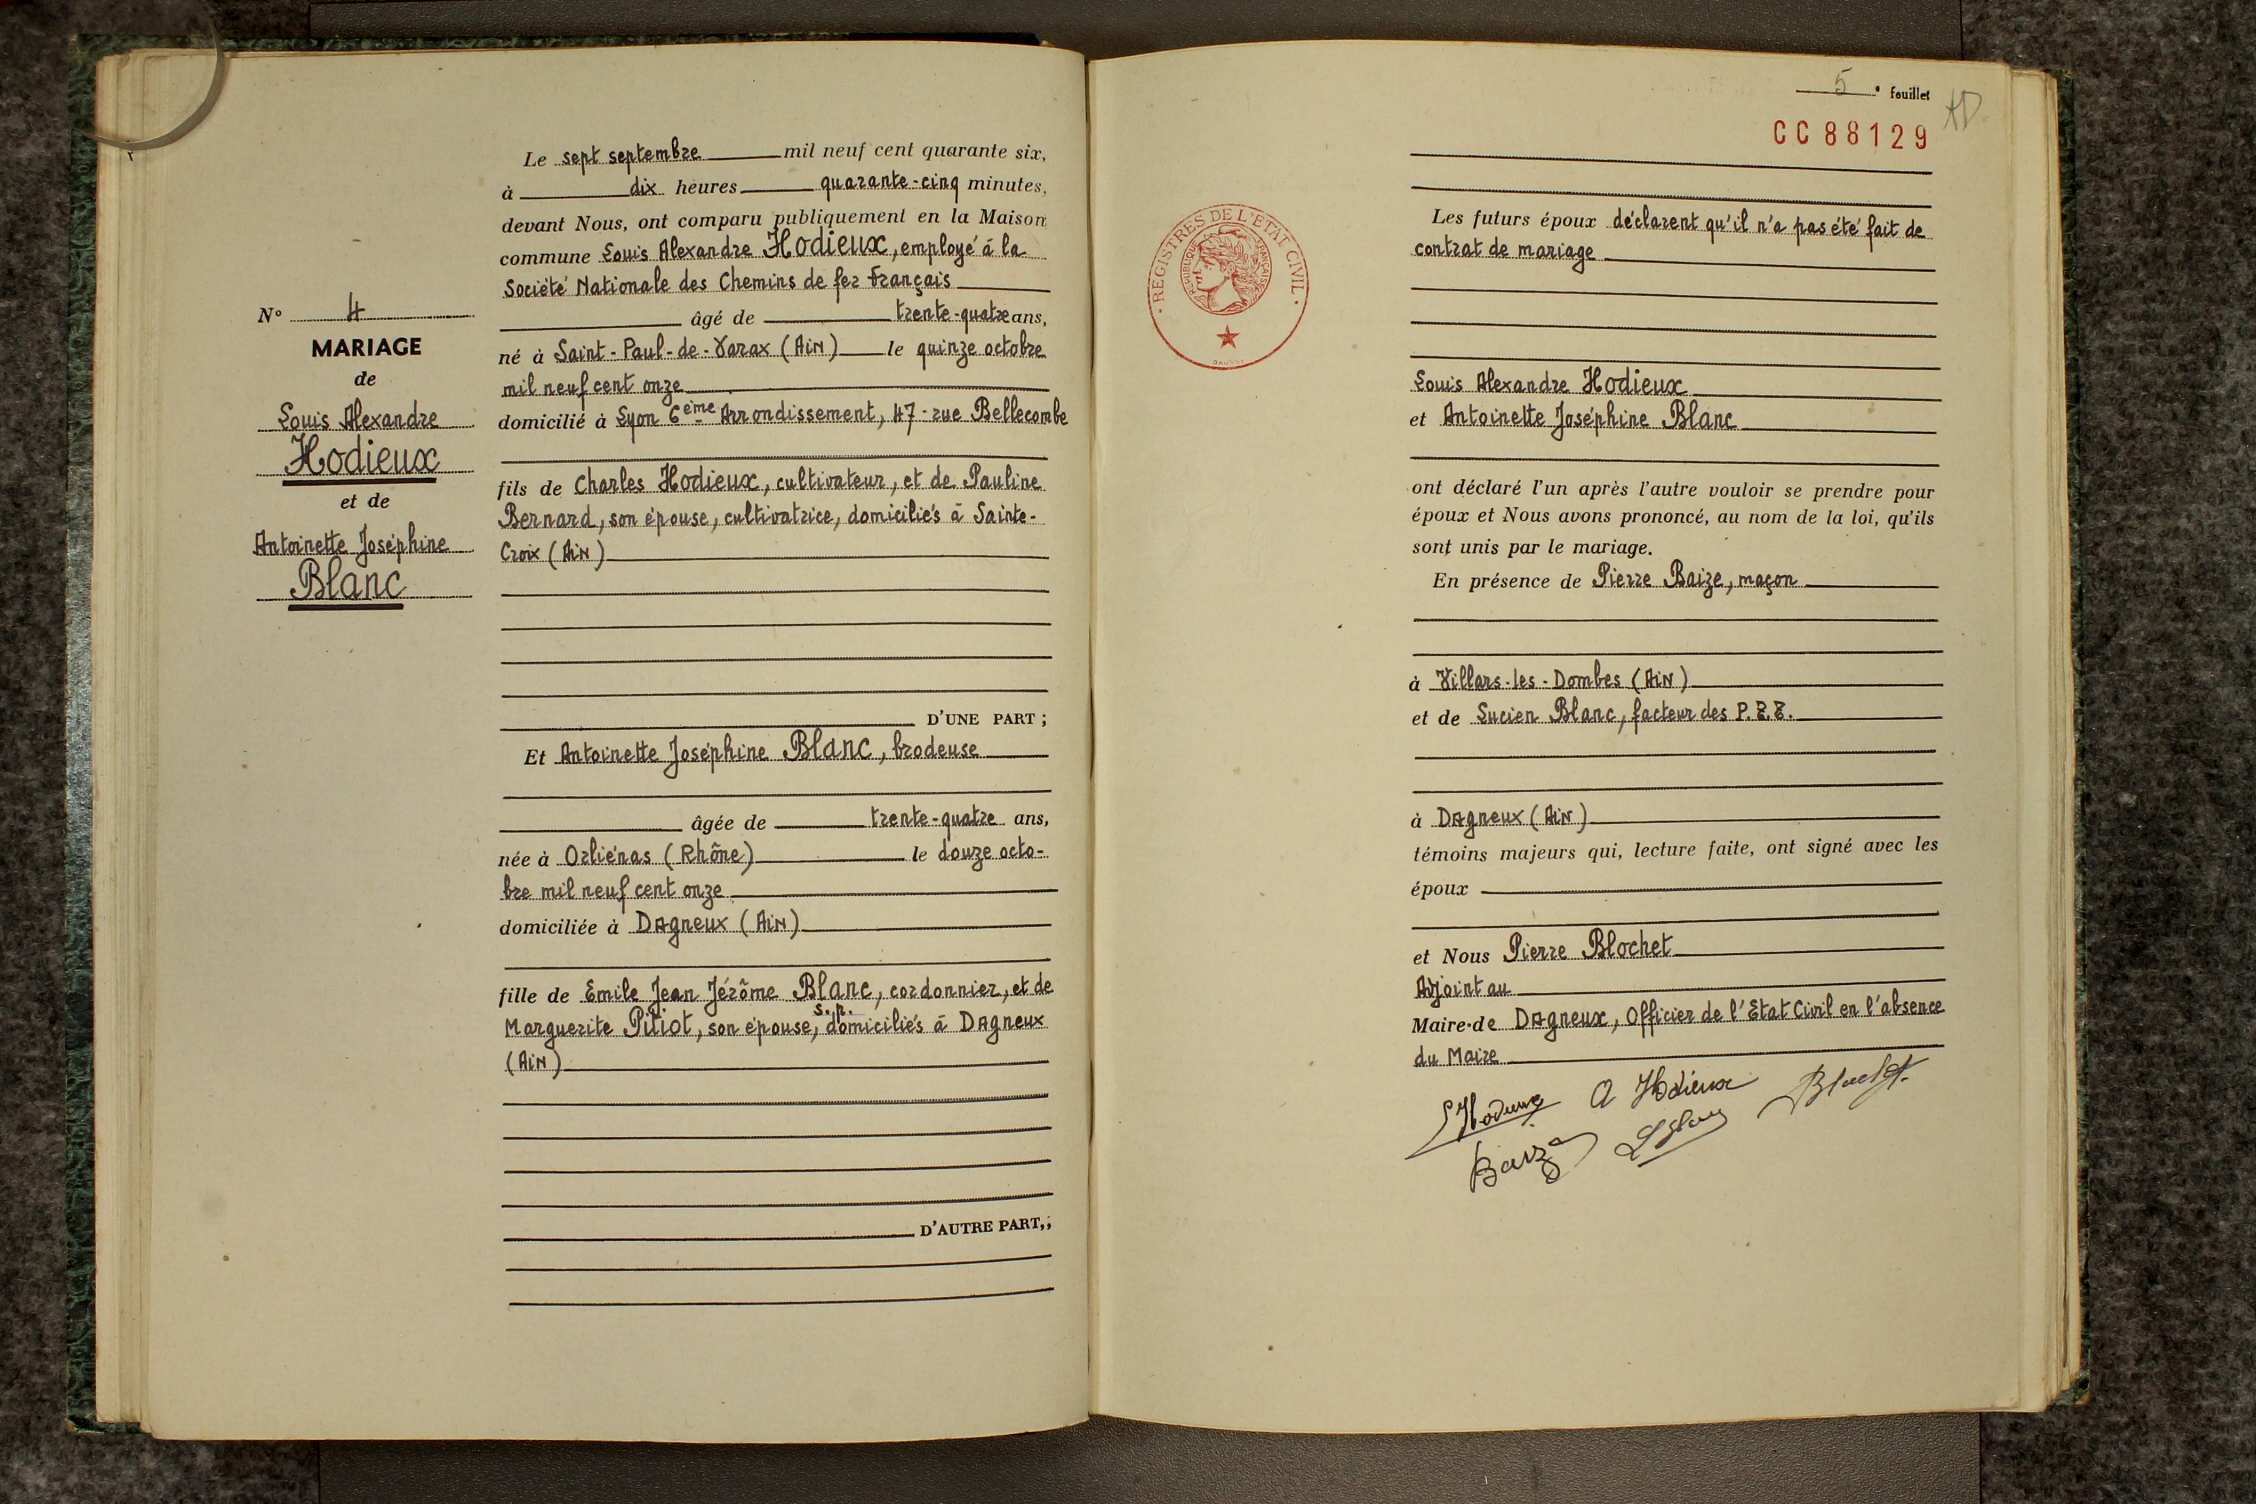 Le sept septembre mil neuf cent quarante six,
à dix heures quarante-cinq minutes,
devant Nous, ont comparu publiquement en la Maison
commune Louis Alexandre Hodieux, employé à la
Société Nationale des Chemins de fer Français
âgé de trente-quatre ans,
né à Saint-Paul-de-Varax (Ain) le quinze octobre
mil neuf cent onze
domicilié à Lyon 6ème Arrondissement, 47-rue Bellecombe
fils de Charles Hodieux, cultivateur, et de Pauline
Bernard, son épouse, cultivatrice, domiciliés à Sainte-
Croix (Ain)
D'UNE PART ;
Et Antoinette Joséphine Blanc, brodeuse
âgée de trente-quatre ans,
née à Orliénas (Rhône) le douze octo-
bre mil neuf cent onze
domiciliée à Dagneux (Ain)
fille de Emile Jean Jérôme Blanc, cordonnier, et de
Marguerite Pitiot, son épouse, s.p. domiciliés à Dagneux
(Ain)
D'AUTRE PART,;
N° 4
MARIAGE
de
Louis Alexandre
Hodieux
et de
Antoinette Joséphine
Blanc
5e feuillet
AD
CC 88129
Les futurs époux déclarent qu'il n'a pas été fait de
contrat de mariage
Louis Alexandre Hodieux
et Antoinette Joséphine Blanc
ont déclaré l'un après l'autre vouloir se prendre pour
époux et Nous avons prononcé, au nom de la loi, qu'ils
sont unis par le mariage.
En présence de Pierre Baize, maçon
à Villars-les-Dombes (Ain)
et de Lucien Blanc, facteur des P.T.T.
à Dagneux (Ain)
témoins majeurs qui, lecture faite, ont signé avec les
époux
et Nous Pierre Blochet
Adjoint au
Maire de Dagneux, Officier de l'Etat Civil en l'absence
du Maire
L Hodieux A Hodieux Blochet
Baize L Blanc
REGISTRES DE L'ETAT CIVIL
REPUBLIQUE FRANÇAISE